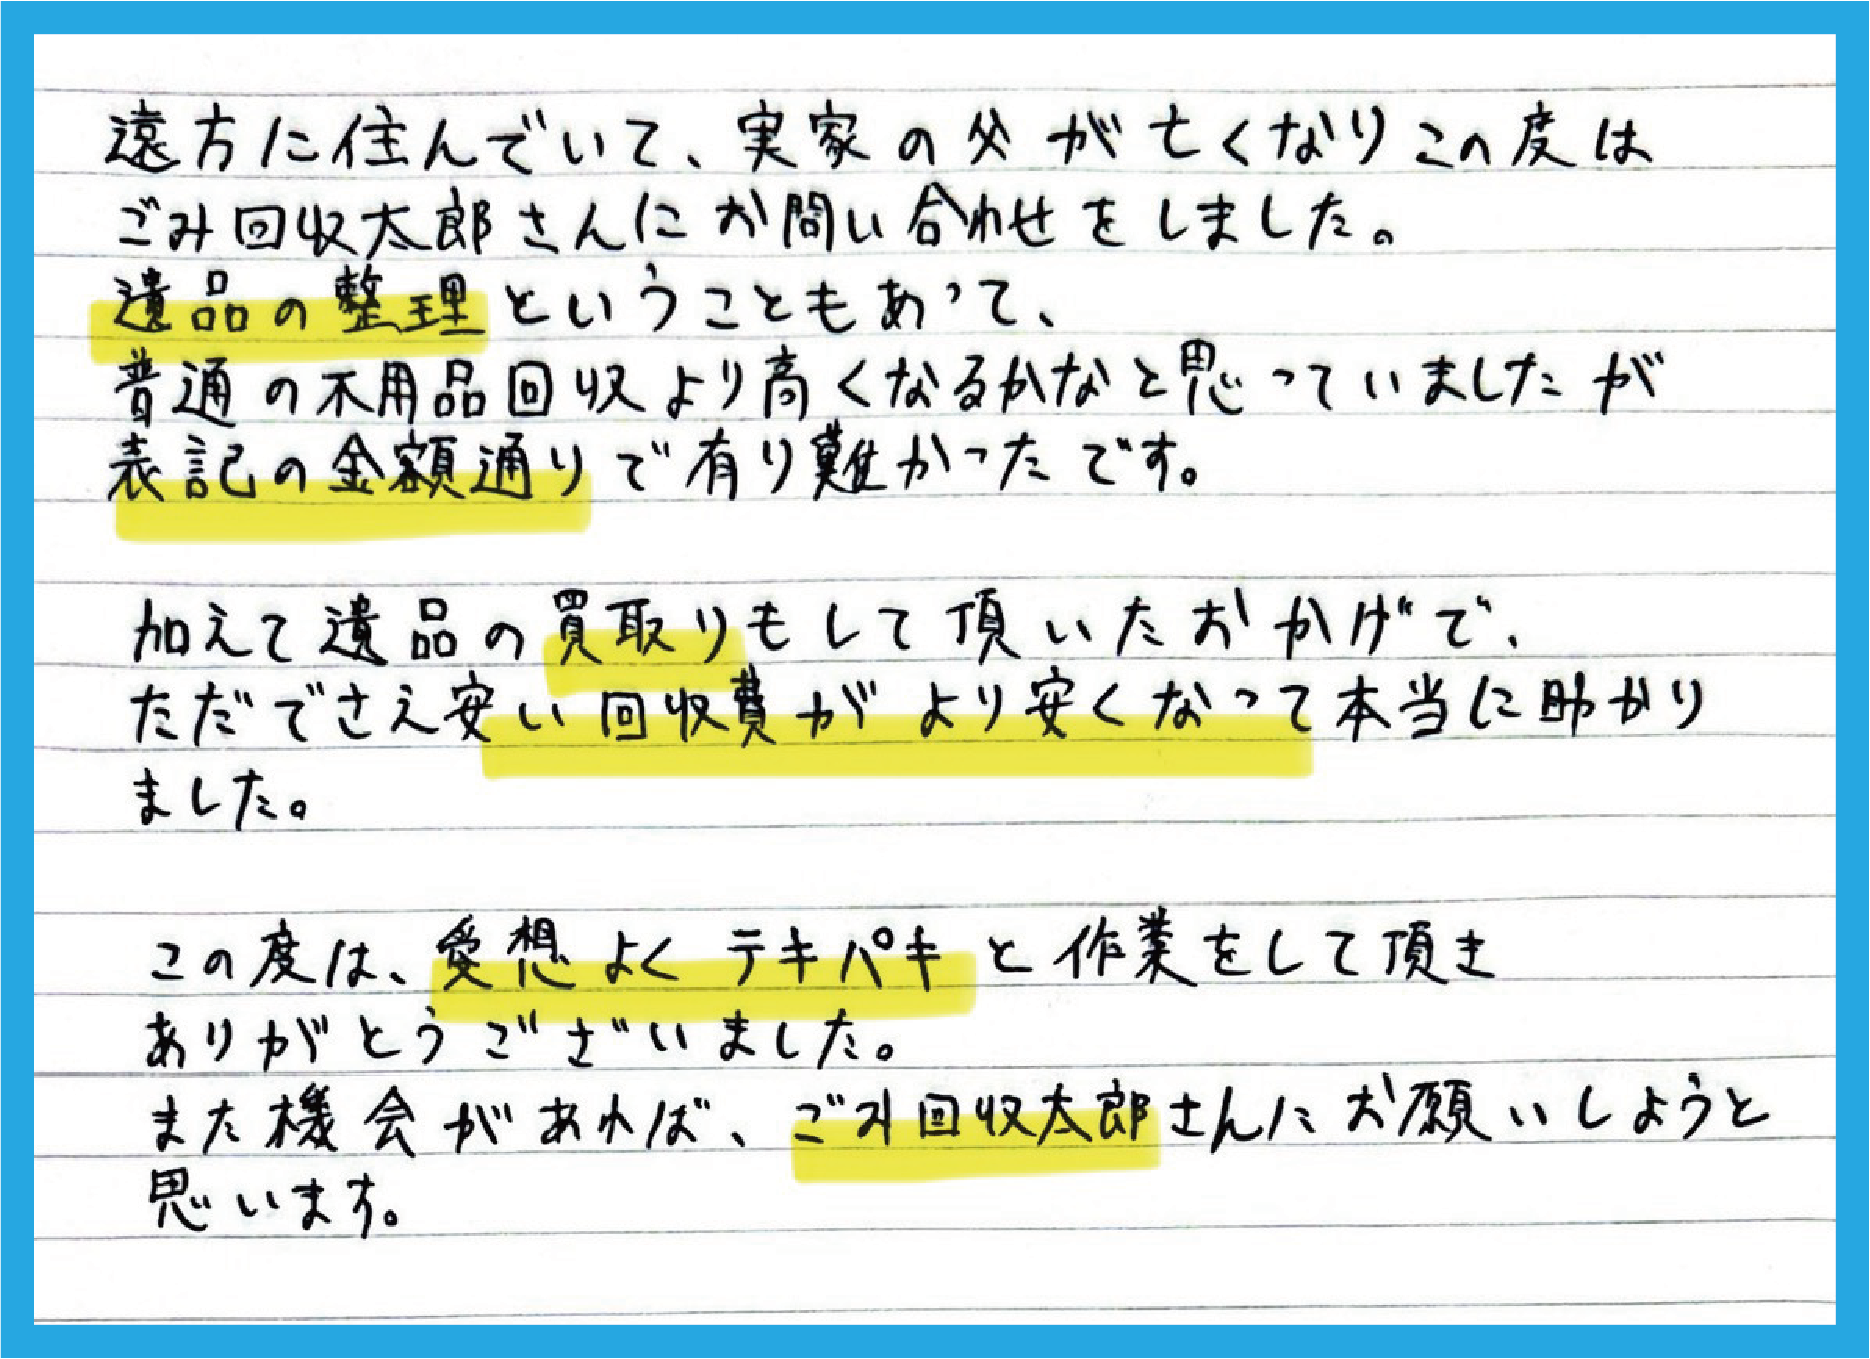 遠方に住んでいて、実家の父が亡くなりこの度は
ごみ回収太郎さんにお問い合わせをしました。
遺品の整理ということもあって、
普通の不用品回収より高くなるかなと思っていましたが
表記の金額通りで有り難かったです。
加えて遺品の買取りもして頂いたおかげで、
ただでさえ安い回収費がより安くなって本当に助かり
ました。
この度は、愛想よくテキパキと作業をして頂き
ありがとうございました。
また機会があれば、ごみ回収太郎さんにお願いしようと
思います。